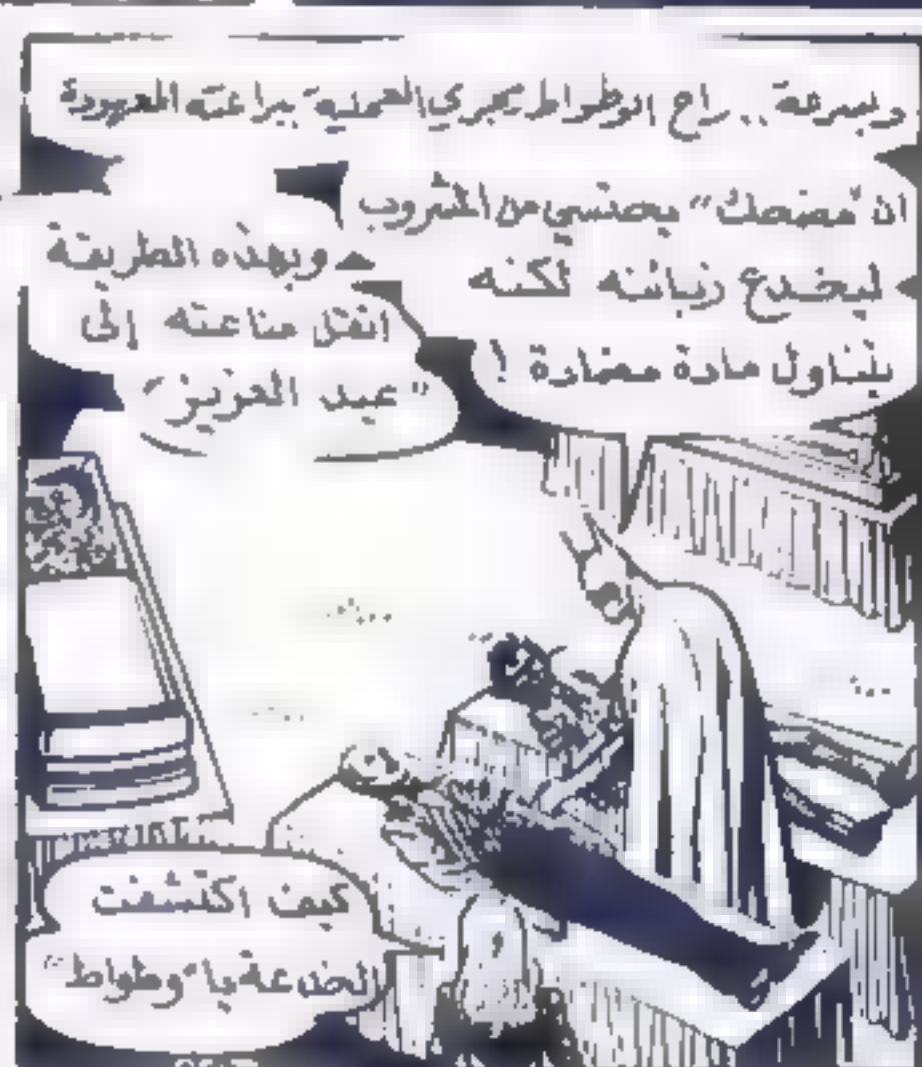 وبسرعة .. راح الوطواط يجري العملية ببراعته المعهودة
ان "مضحك" يحتسي من المشروب
ليخدع زبائنه لكنه
يتناول مادة مضادة !
وبهذه الطريقة
انقل مناعته إلى
"عبد العزيز"
كيف اكتشفت
الخدعة يا "وطواط"